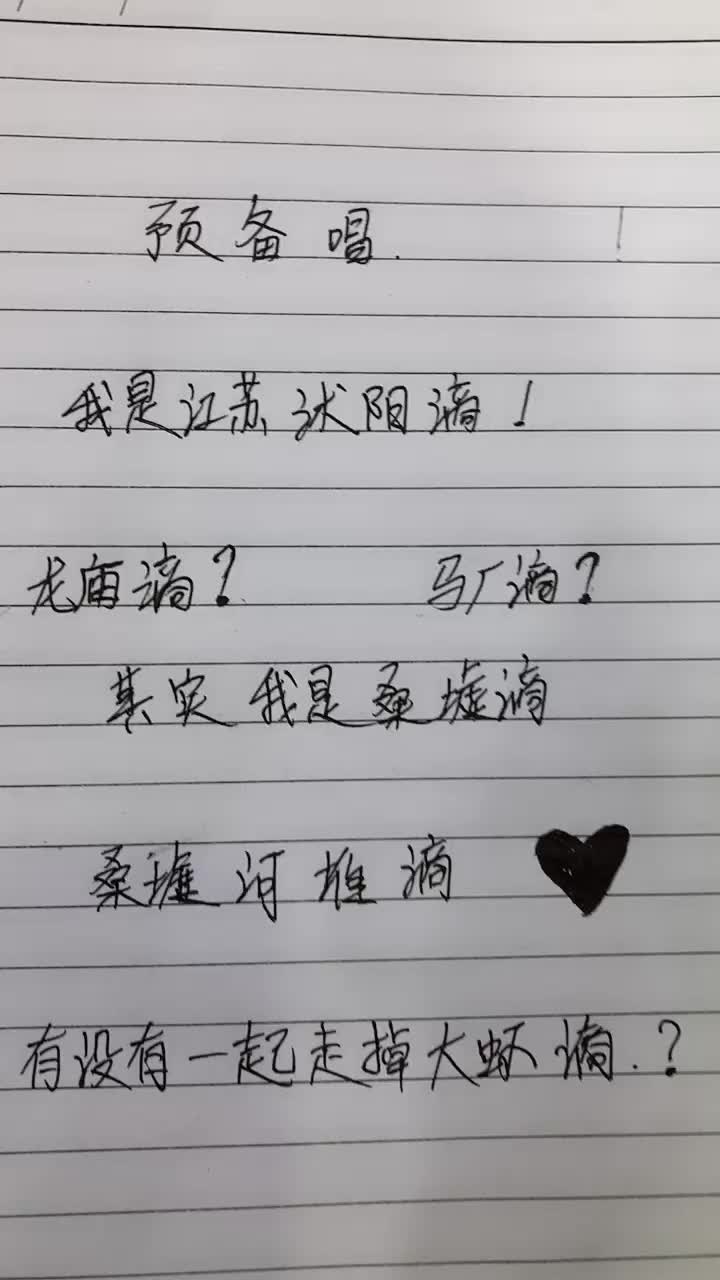 预备唱.
我是江苏沭阳滴！
龙庙滴？ 马厂滴？
其实我是桑墟滴
桑墟河堆滴
有没有一起走掉大虾滴.？